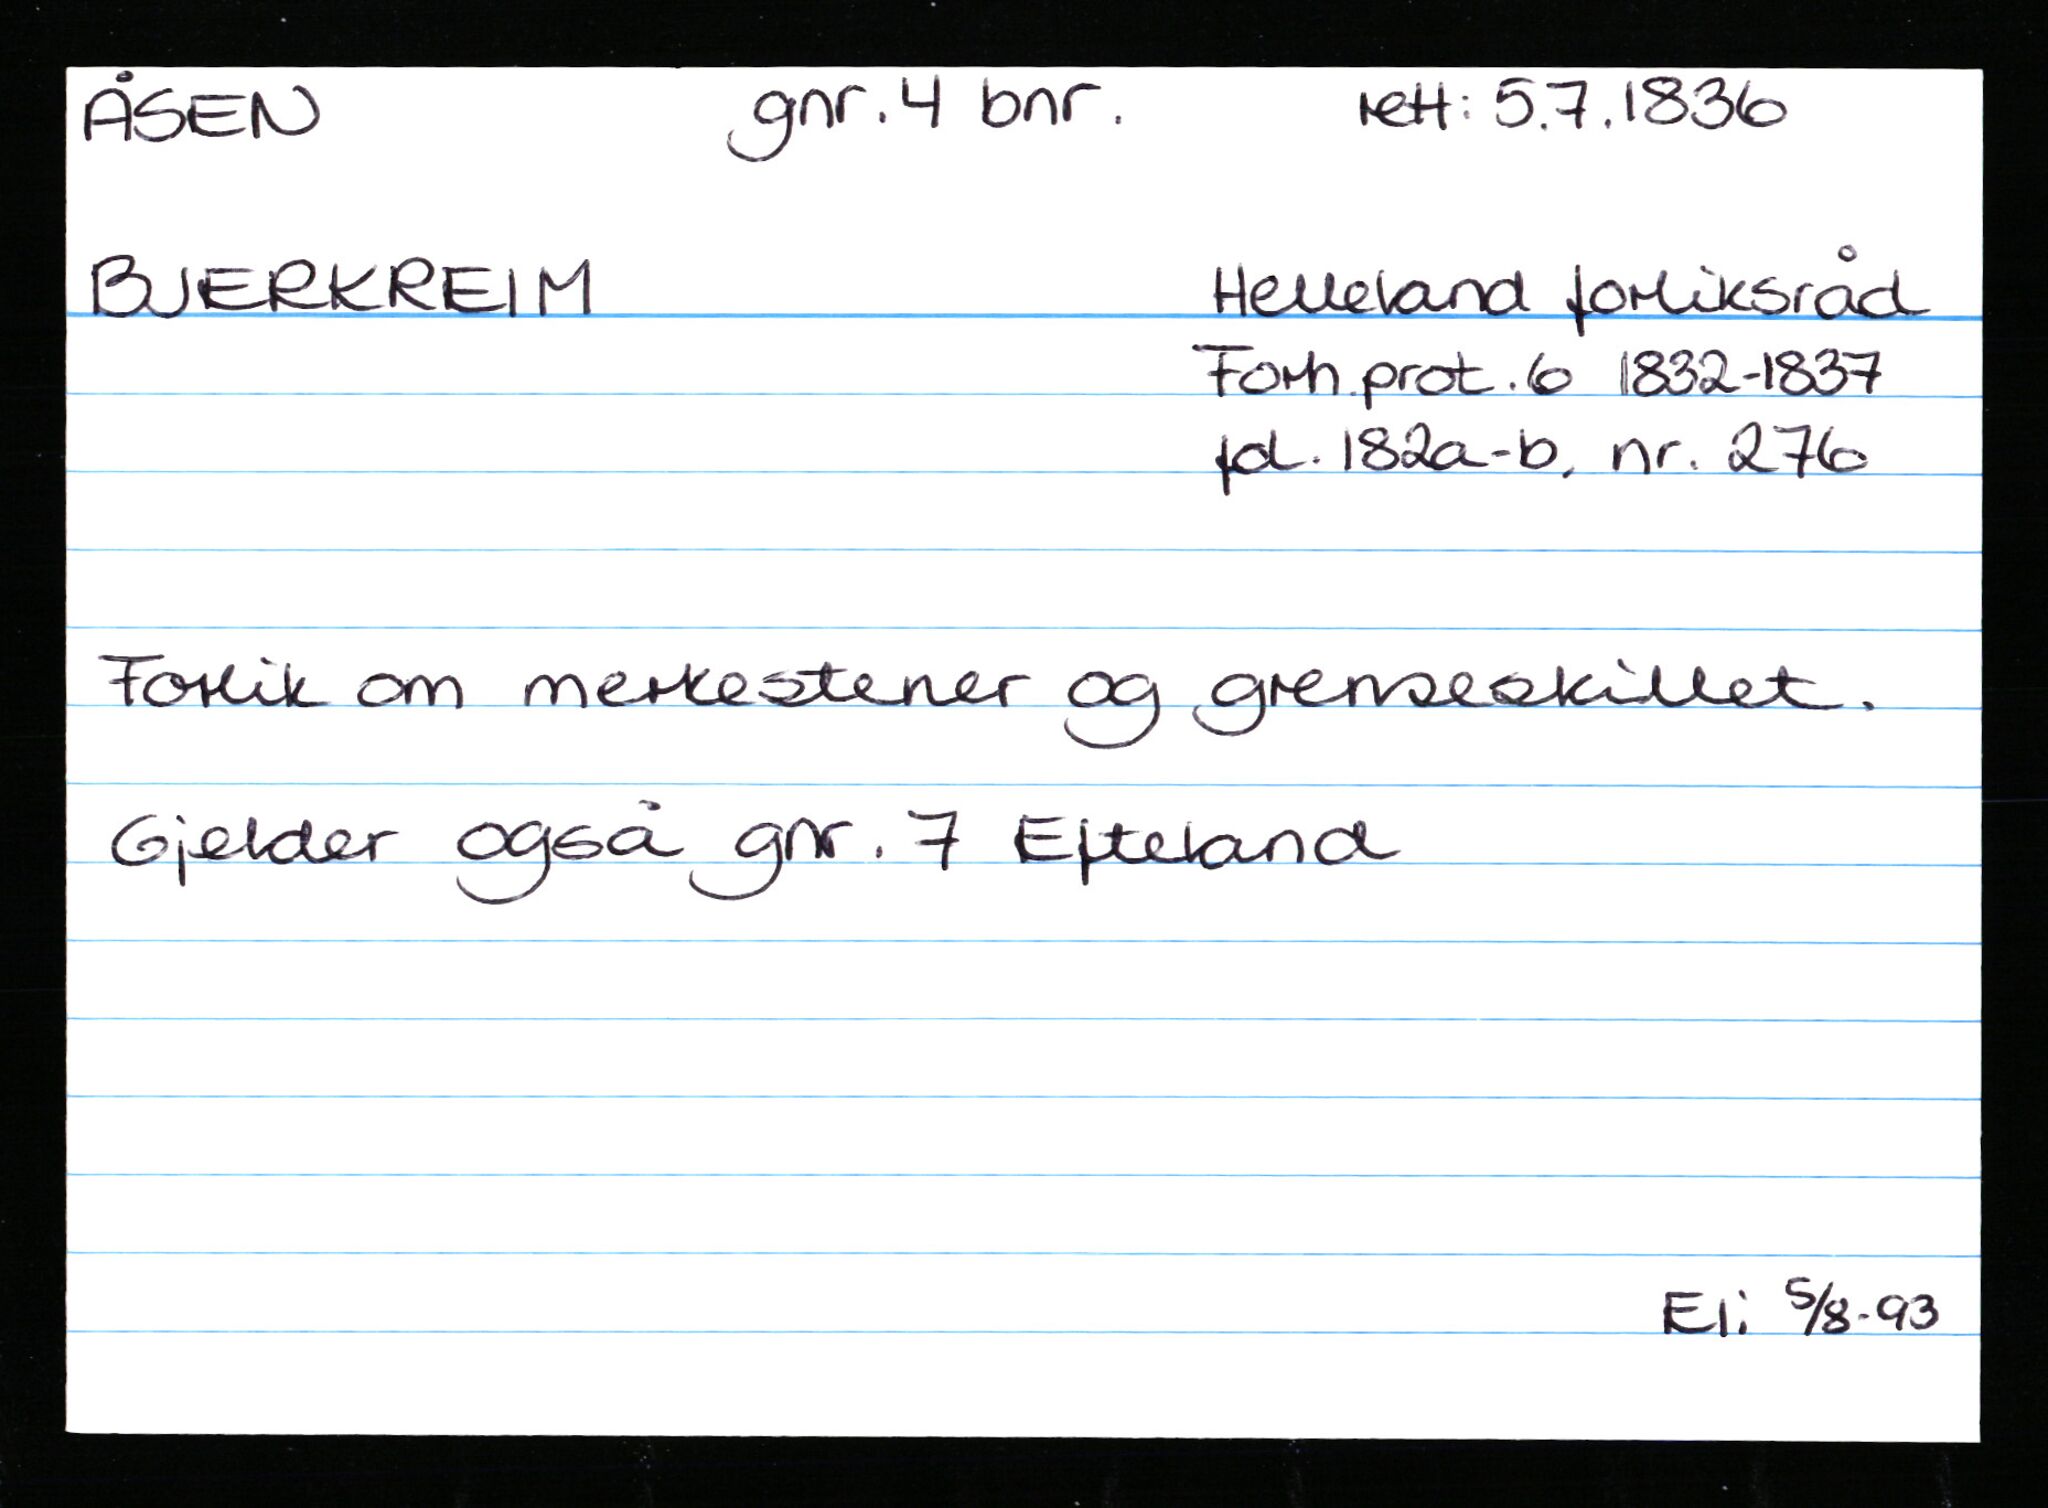 ÅSEN gnr. 4 bnr. rett: 5.7.1836
BJERKREIM Helleland forliksråd
Forh.prot. 6 1832-1837
fol. 182a-b, nr. 276
Forlik om merkestener og grenseskillet.
Gjelder også gnr. 7 Efteland
Eli 5/8-93